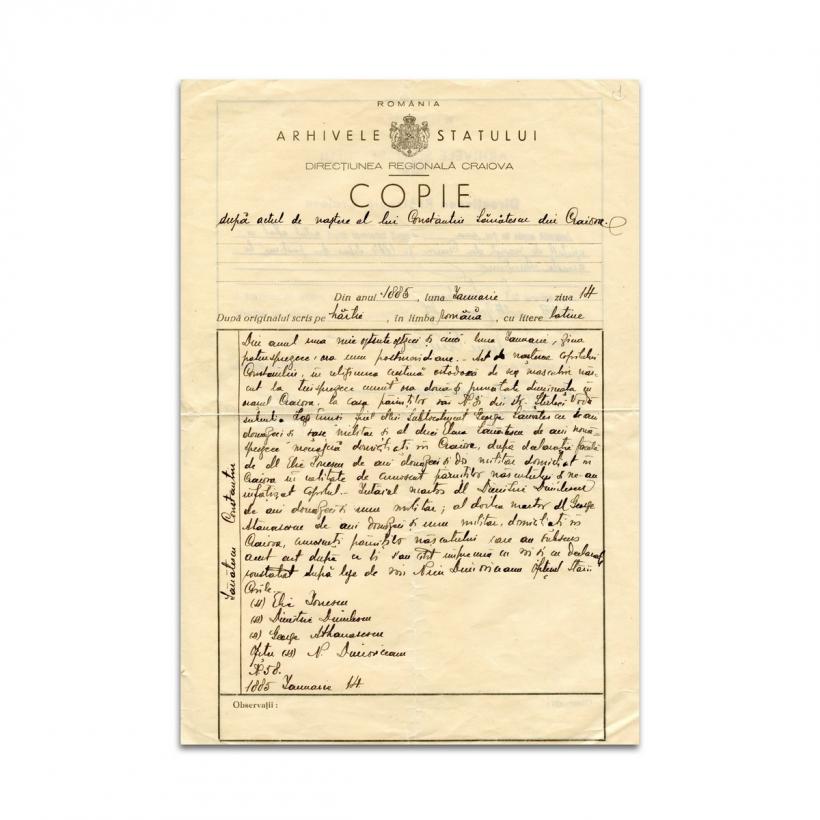 ROMÂNIA
ARHIVELE STATULUI
DIRECȚIUNEA REGIONALĂ CRAIOVA
COPIE
după actul de naștere al lui Constantin Sănătescu din Craiova.
Din anul 1885, luna Ianuarie, ziua 14
După originalul scris pe hârtie, în limba română, cu litere latine
Din anul una mie optsute optzeci și cinci luna Ianuarie, ziua
patrusprezece, ora una postmeridiane. Act de nașterea copilului
Constantin, de religiunea creștină ortodoxă de sex masculin năs-
cut la treisprezece curent ora două și jumătate dimineața în
orașul Craiova, la casa părinților săi No 31 din str. Știrbei Vodă
fiul d-lui Sublocotenent George Sănătescu de ani
douăzeci și șase militar și al d-nei Clara Sănătescu de ani nouă-
sprezece menajeră domiciliați în Craiova, după declarația făcută
de dl Ilie Ionescu de ani douăzeci și doi militar domiciliat în
Craiova în calitate de cunoscut părinților născutului și ne-au
înfățișat copilul. Întâiul martor dl Dimitrie Dumitrescu
de ani douăzeci și unu militar; al doilea martor dl George
Atanasescu de ani douăzeci și unu militar, domiciliați în
Craiova, cunoscuți părinților născutului care au subscris
acest act după ce li s'au citit împreună cu noi și cu declarantul
constatat după lege de noi Nicu Ofițerul Stării
Civile.
(ss) Ilie Ionescu
(ss) Dimitrie Dumitrescu
(ss) George Athanasescu
Ofițer (ss) N.
No 58.
1885 Ianuarie 14
Sănătescu Constantin
Observații :